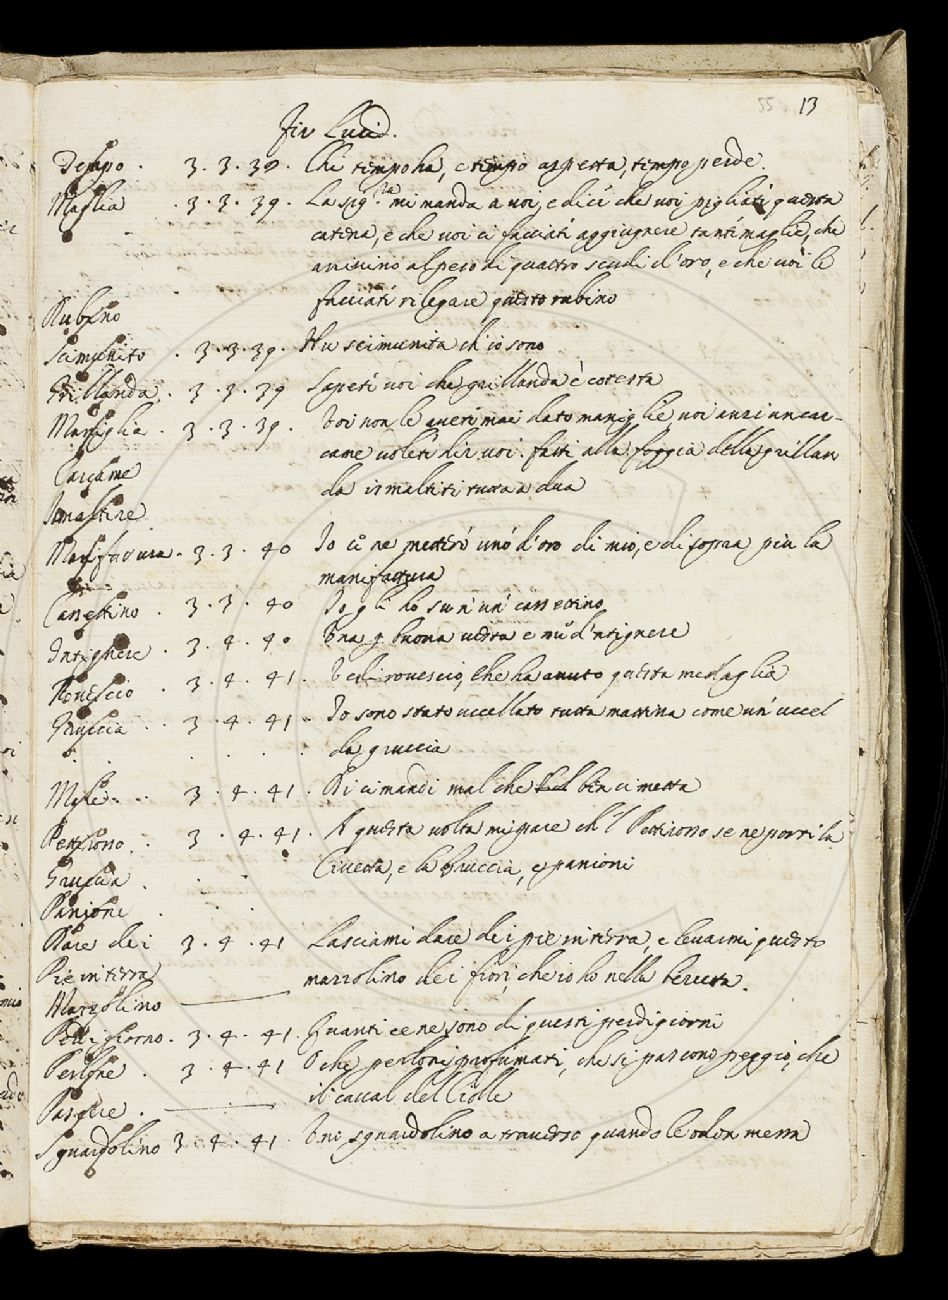 55 13
Fir. Lucid.
Tempo . 3. 3. 39. Chi tempo ha, e tempo aspetta, tempo perde.
Maglia . 3. 3. 39. La Sig.ra mi manda a voi, e dice che voi pigliate questa
catena, e che voi ci facciate aggiugnere tante maglie, che
arrivino al peso di quattro scudi d'oro, e che voi le
Rubino facciate rilegare questo rubino
Scimunito . 3. 3. 39. Hu scimunita ch'io sono
Grillanda . 3. 3. 39 Sapete voi che grillanda è cotesta
Maniglia . 3. 3. 39. Voi non le averi mai dato maniglie voi anzi un car-
Carcame came volete dir voi. fatti alla foggia della grillan
Smaltire da ismaltiti tutta a dua
Manifattura . 3. 3. 40 Io ci ne metterò uno d'oro di mio, e di sopra più la
manifattura
Cassettino . 3. 3. 40 Io gli ho su n'un cassettino
Intignere . 3. 4. 40 Una q buona vesta e d'ntignere
Rovescio . 3. 4. 41. Vedi rovescio, che ha avuto questa medaglia
Gruccia . 3. 4. 41. Io sono stato uccellato tutta mattina come un' uccel
da gruccia
Male . . 3. 4. 41. Di ci mandi mal che ben ci metta
Pettirosso . . 3. 4. 41. A questa volta mi pare ch'l Pettirosso se ne porti la
Gruccia . Civetta, e la Gruccia, e panioni
Panione .
Dare de i 3. 4. 41 Lasciami dare de i piè in terra, e levarmi questo
Piè in terra mazzolino de i fiori, che io ho nella berretta.
Mazzolino
Perdigiorno . 3. 4. 41. Quanti ce ne sono di questi perdigiorni
Perlone . 3. 4. 41 O che perloni profumati, che si pascono peggio, che
Pascere . il caval del Ciolle
Sguardolino 3. 4. 41. Uni sguardolino a traverso quando le donna menra